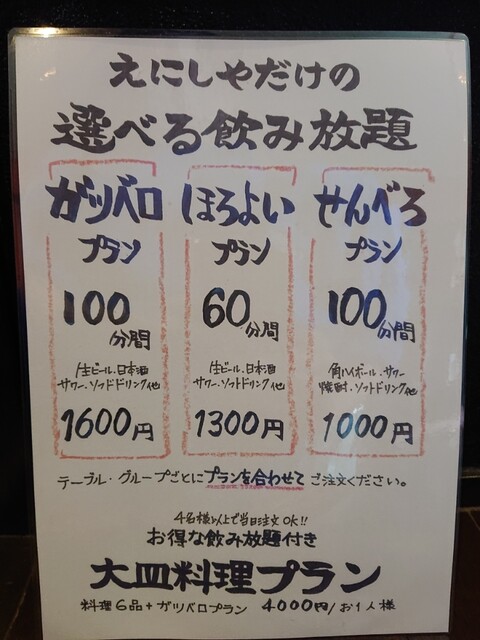 えにしやだけの
選べる飲み放題
ガツベロ ほろよい せんべろ
プラン プラン プラン
100分間 60分間 100分間
生ビール、日本酒 生ビール、日本酒 角ハイボール、サワー
サワー、ソフトドリンク他 サワー、ソフトドリンク他 焼酎、ソフトドリンク他
1600円 1300円 1000円
テーブル・グループごとにプランを合わせてご注文ください。
4名様以上で当日注文OK!!
お得な飲み放題付き
大皿料理プラン
料理6品+ガツベロプラン 4000円/お1人様